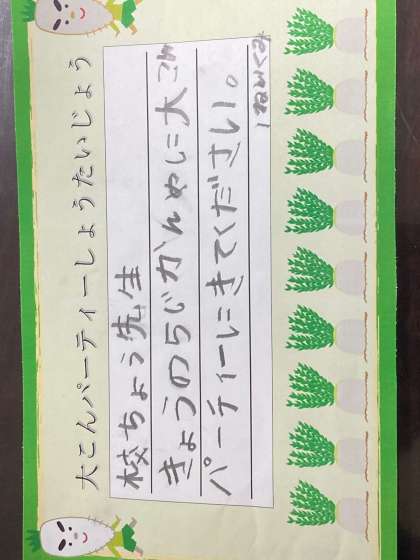 大こんパーティーしょうたいじょう
校ちょう先生
きょうの5じかんめに大こん
パーティーにきてください。
1ねん